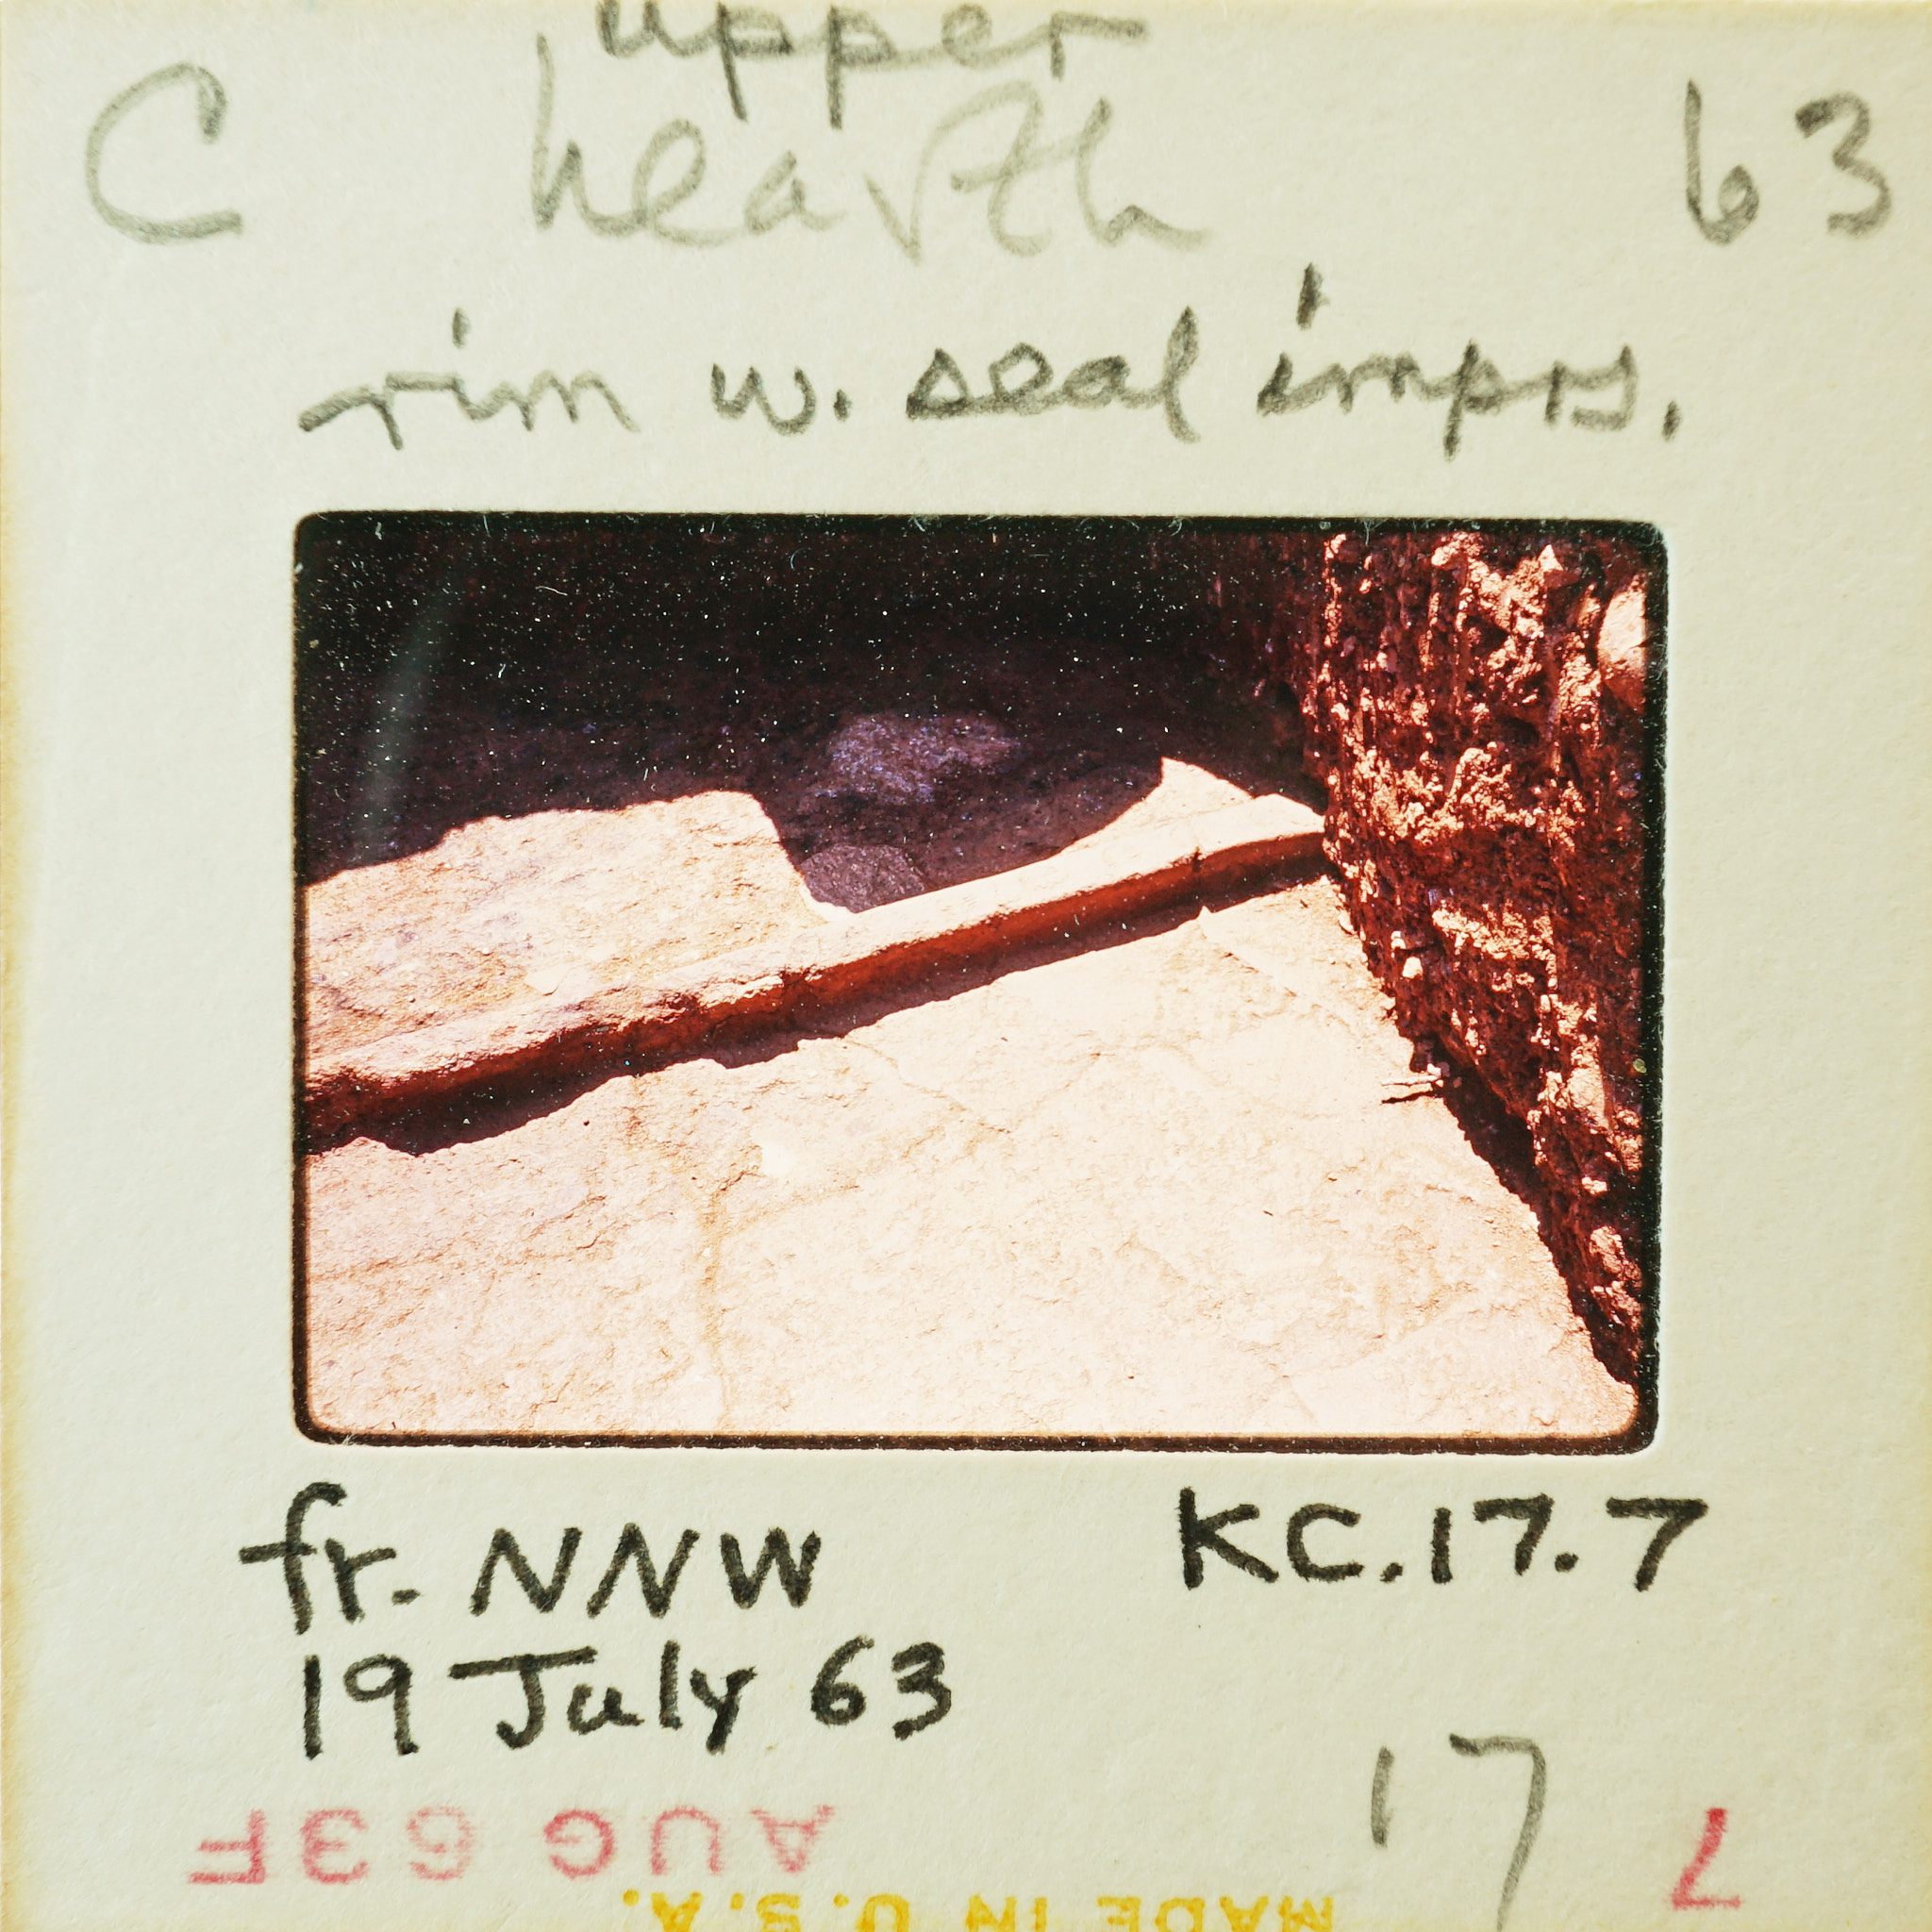 upper
C hearth 63
rim w. seal imprs.
fr. NNW KC.17.7
19 July 63
17
AUG 63F
7
MADE IN U.S.A.